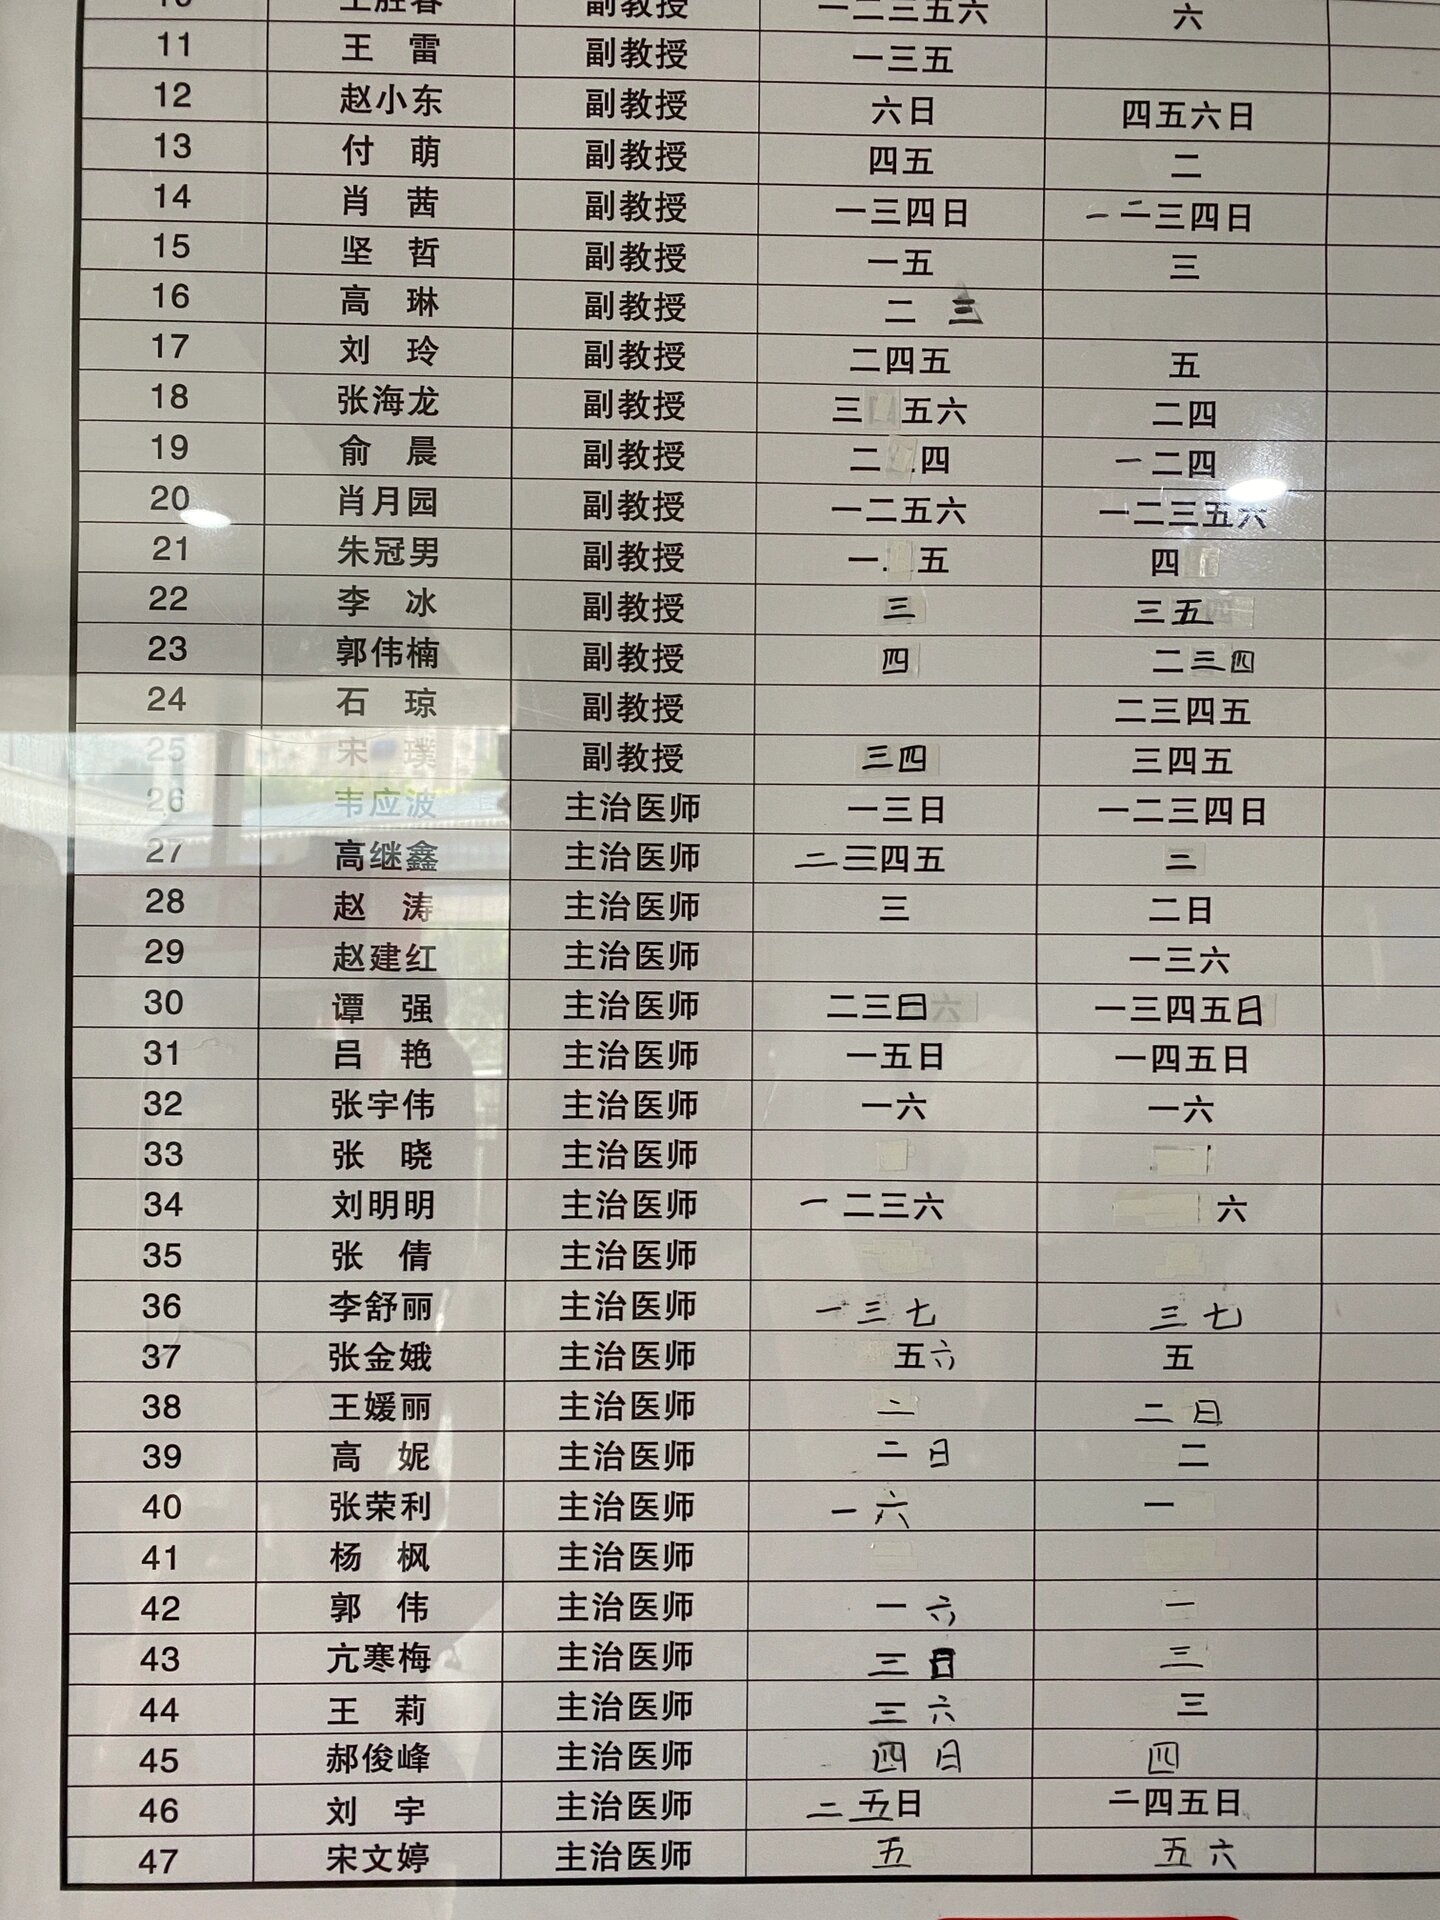 副教授 一二三五六 六
11 王 雷 副教授 一三五
12 赵小东 副教授 六日 四五六日
13 付 萌 副教授 四五 二
14 肖 茜 副教授 一三四日 一二三四日
15 坚 哲 副教授 一五 三
16 高 琳 副教授 二 三
17 刘 玲 副教授 二四五 五
18 张海龙 副教授 三 五六 二四
19 俞 晨 副教授 二 四 一二四
20 肖月园 副教授 一二五六 一二三五六
21 朱冠男 副教授 一 五 四
22 李 冰 副教授 三 三五
23 郭伟楠 副教授 四 二三四
24 石 琼 副教授 二三四五
25 宋 璞 副教授 三四 三四五
26 韦应波 主治医师 一三日 一二三四日
27 高继鑫 主治医师 二三四五 二
28 赵 涛 主治医师 三 二日
29 赵建红 主治医师 一三六
30 谭 强 主治医师 二三日六 一三四五日
31 吕 艳 主治医师 一五日 一四五日
32 张宇伟 主治医师 一六 一六
33 张 晓 主治医师
34 刘明明 主治医师 一二三六 六
35 张 倩 主治医师
36 李舒丽 主治医师 一三七 三七
37 张金娥 主治医师 五六 五
38 王媛丽 主治医师 二 二日
39 高 妮 主治医师 二日 二
40 张荣利 主治医师 一六 一
41 杨 枫 主治医师
42 郭 伟 主治医师 一六 一
43 亢寒梅 主治医师 三日 三
44 王 莉 主治医师 三六 三
45 郝俊峰 主治医师 四日 四
46 刘 宇 主治医师 二五日 二四五日
47 宋文婷 主治医师 五 五六